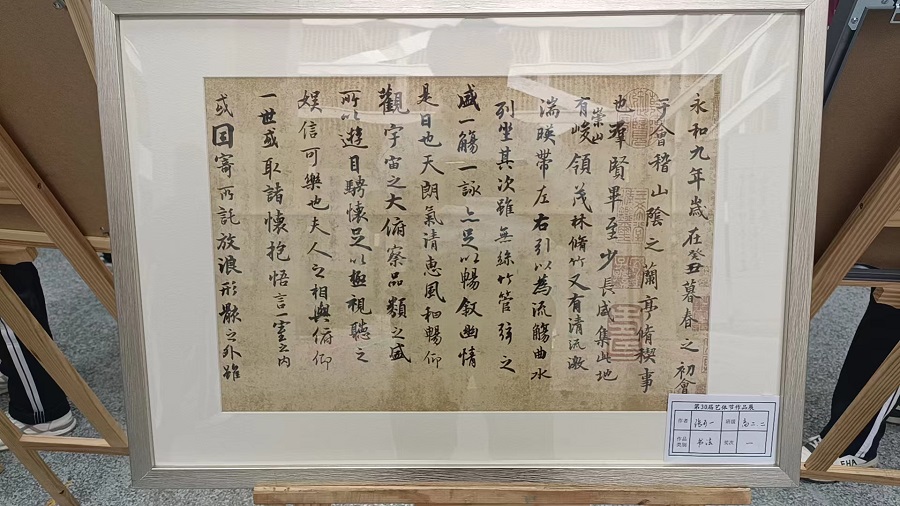 永和九年歲在癸丑暮春之初會
于會稽山陰之蘭亭脩稧事
也羣賢畢至少長咸集此地
有崇山峻領茂林脩竹又有清流激
湍暎帶左右引以為流觴曲水
列坐其次雖無絲竹管弦之
盛一觴一詠亦足以暢敘幽情
是日也天朗氣清惠風和暢仰
觀宇宙之大俯察品類之盛
所以遊目騁懷足以極視聽之
娛信可樂也夫人之相與俯仰
一世或取諸懷抱悟言一室之內
或因寄所託放浪形骸之外雖
第38届艺体节作品展
作者 班级 高二.二
作品类别 书法 奖次 一